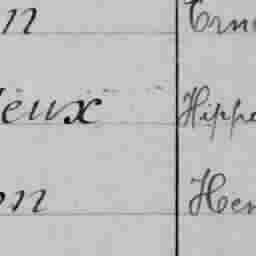 n Erne
ieux Hippo
on Hen